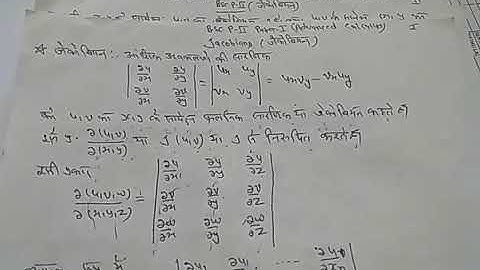 BSC P-II (जैकोबियन)
BSC P-II Paper-I (Advanced Calculus) I
Jacobians (जैकोबियन)
* जैकोबियन :- आंशिक अवकलजों की सारणिक
| ∂u/∂x ∂u/∂y ; ∂v/∂x ∂v/∂y | = | ux uy ; vx vy | = ux vy - vx uy
को u, v का x, y के सापेक्ष फलनिक सारणिक या जैकोबियन कहते हैं।
इसे ∂(u,v)/∂(x,y) या J(u,v) या J से निरूपित करते हैं।
इसी प्रकार
∂(u,v,w)/∂(x,y,z) = | ∂u/∂x ∂u/∂y ∂u/∂z ; ∂v/∂x ∂v/∂y ∂v/∂z ; ∂w/∂x ∂w/∂y ∂w/∂z |